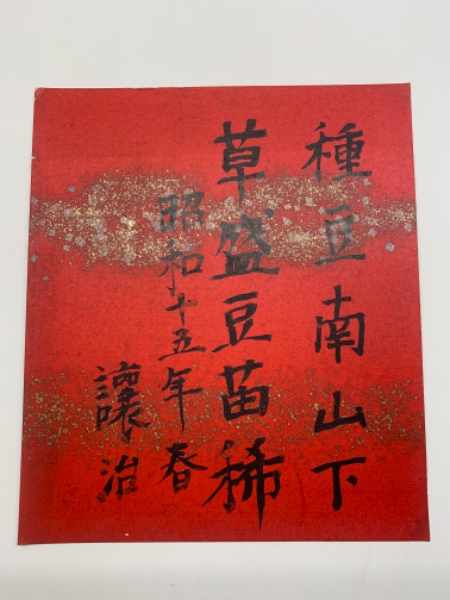 種豆南山下
草盛豆苗稀
昭和十五年春
譲治